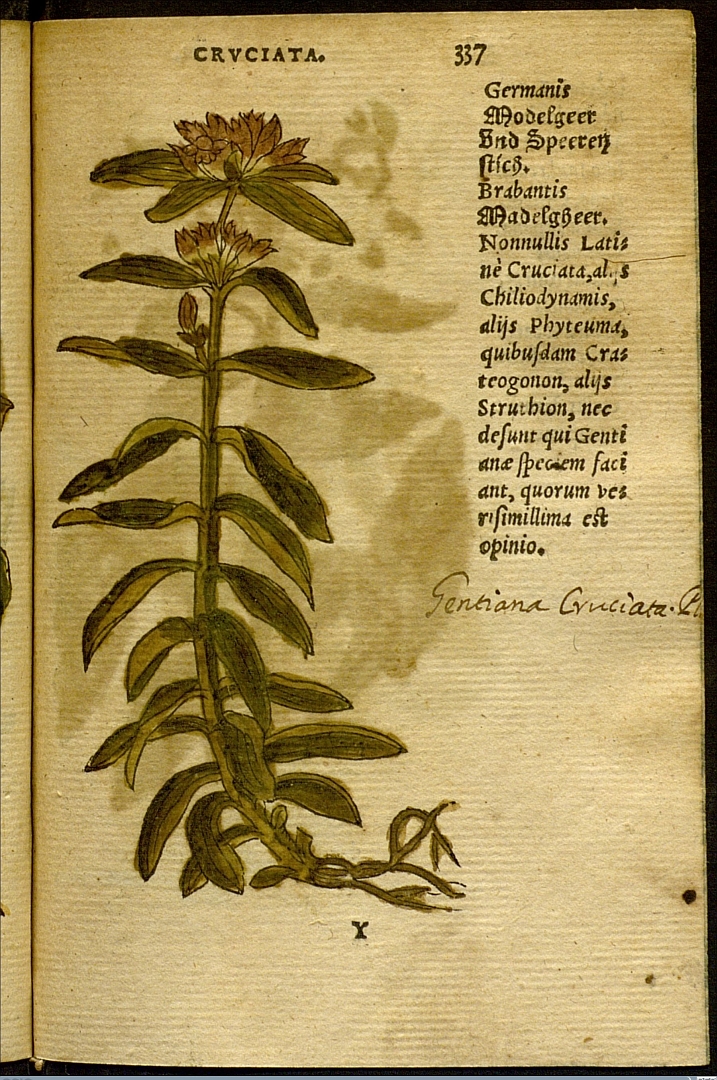 CRVCIATA. 337
Germanis
Modelgeer
Vnd Speeren
ſtich.
Brabantis
Madelgheer.
Nonnullis Lati⸗
nè Cruciata, alijs
Chiliodynamis,
alijs Phyteuma,
quibuſdam Cra⸗
teogonon, alijs
Struthion, nec
deſunt qui Genti
anæ ſpeciem faci
ant, quorum ve⸗
riſimillima est
opinio.
Gentiana Cruciata.
Y